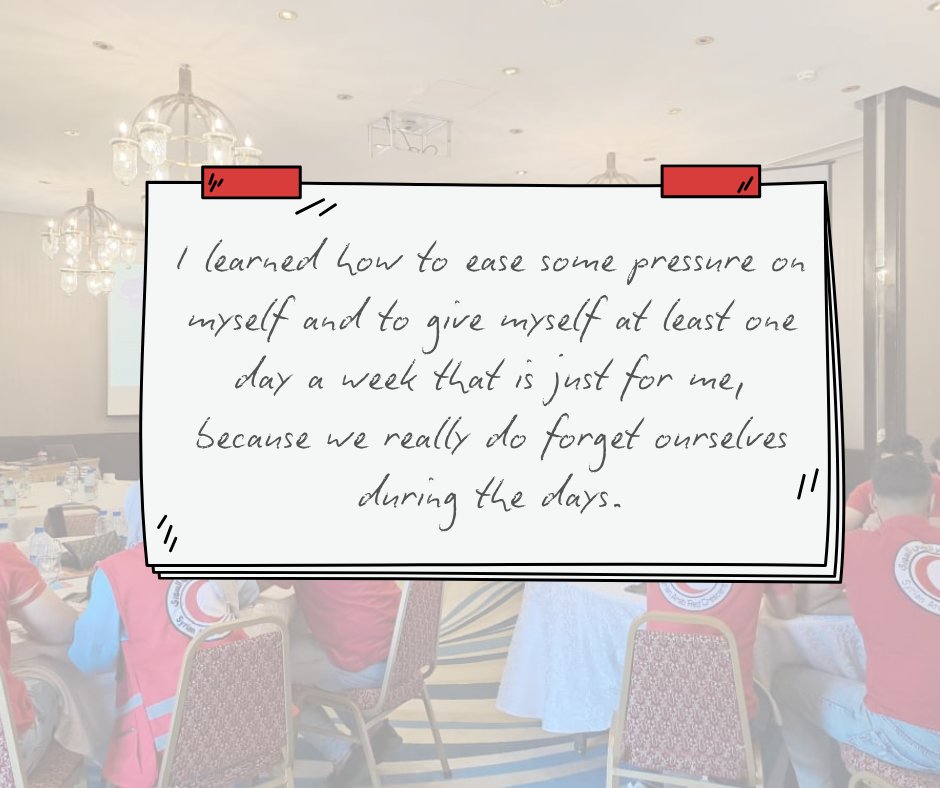 I learned how to ease some pressure on
myself and to give myself at least one
day a week that is just for me,
because we really do forget ourselves
during the days.
Syrian
Arab Red Crescent
Syrian Ar